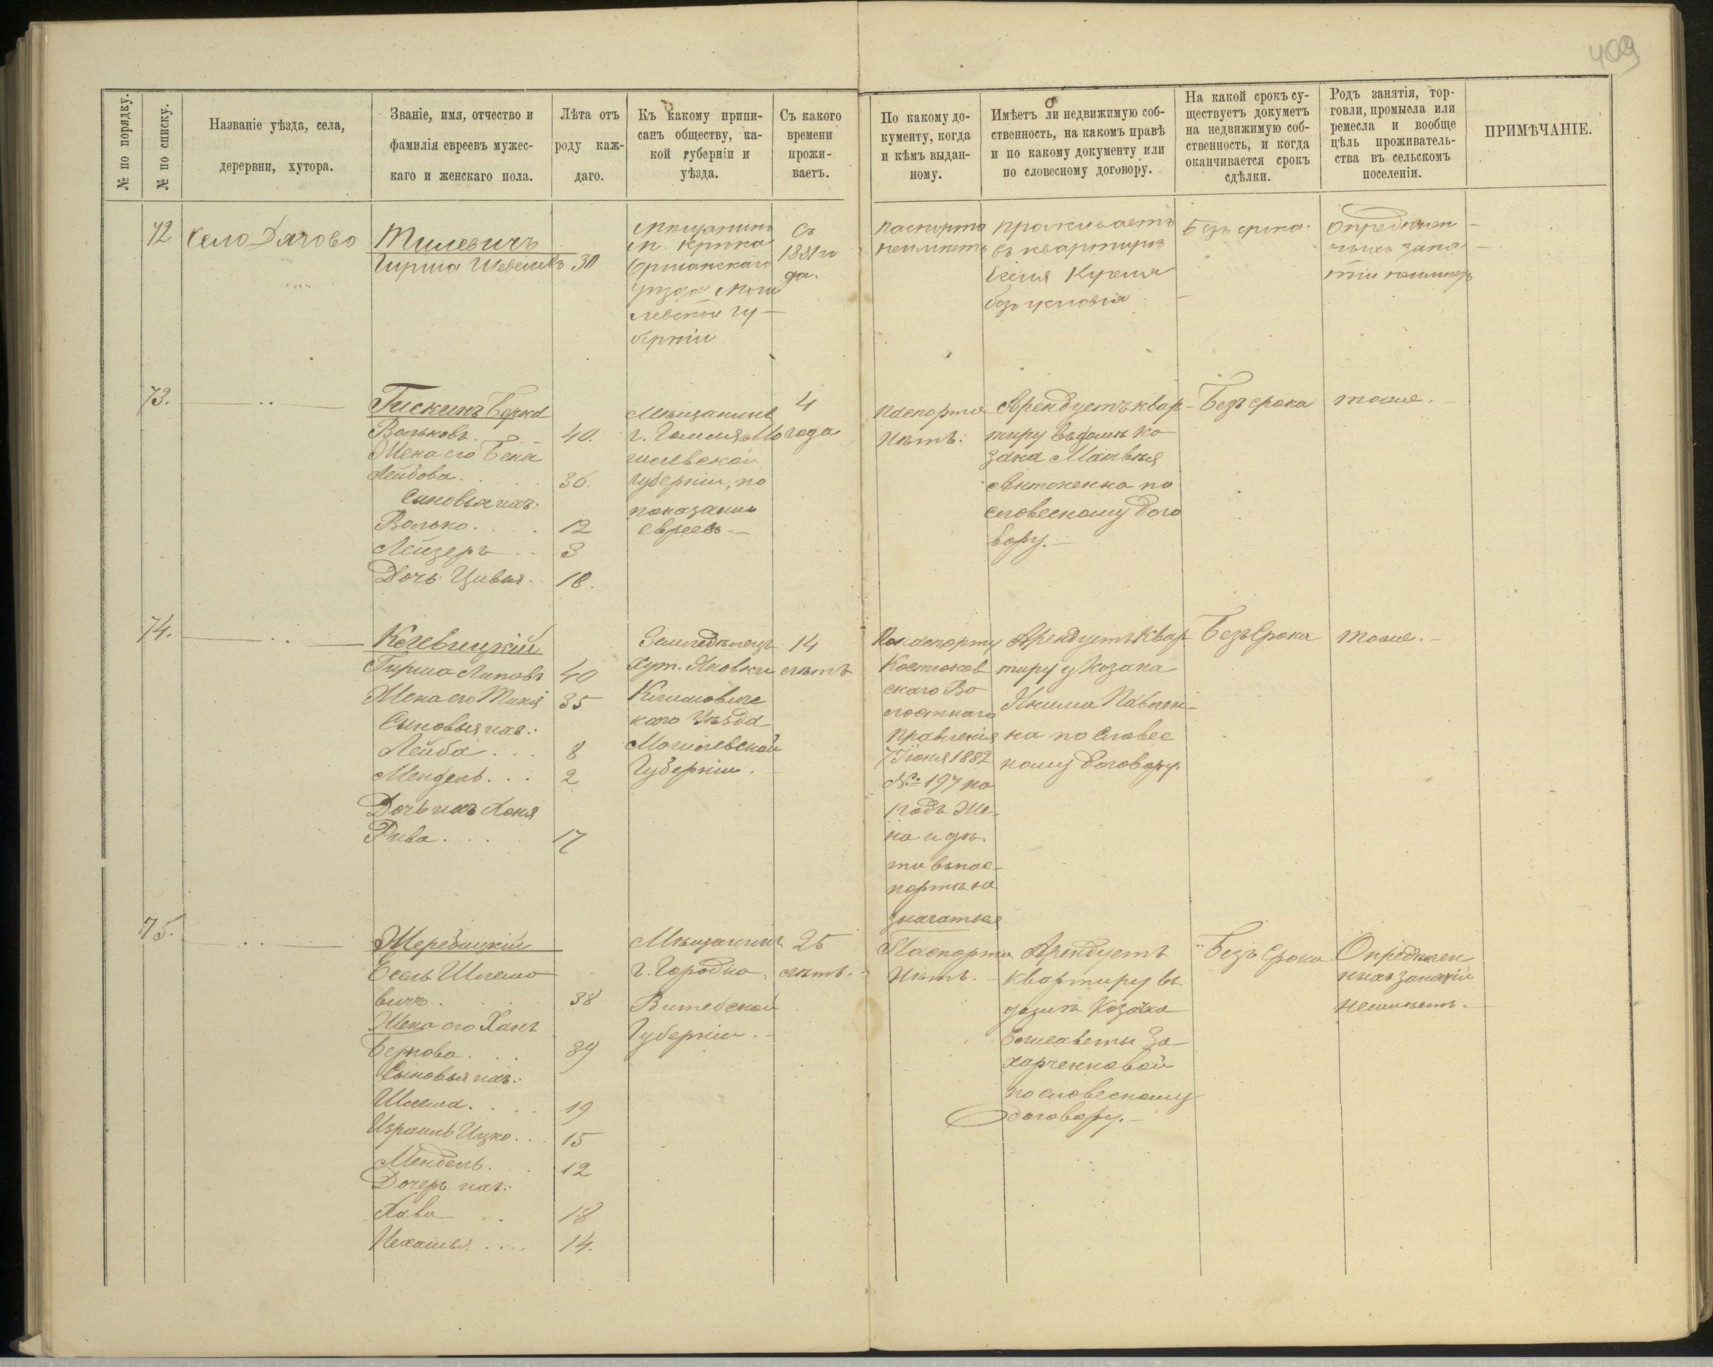 409
№ по порядку.
№ по списку.
Названіе уѣзда, села,
дерервни, хутора.
Званіе, имя, отчество и
фамилія евреевъ мужес-
каго и женскаго пола.
Лѣта отъ
роду каж-
даго.
Къ какому припи-
санъ обществу, ка-
кой губерніи и
уѣзда.
Съ какого
времени
прожи-
ваетъ.
По какому до-
кументу, когда
и кѣмъ выдан-
ному.
Имѣетъ ли недвижимую соб-
ственность, на какомъ правѣ
и по какому документу или
по словесному договору.
На какой срокъ су-
ществуетъ докуметъ
на недвижимую соб-
ственность, и когда
оканчивается срокъ
сдѣлки.
Родъ занятія, тор-
говли, промысла или
ремесла и вообще
цѣль проживатель-
ства въ сельскомъ
поселеніи.
ПРИМѢЧАНІЕ.
72
Село Дягово
Милевичъ
Гирша 30
Мѣщанинъ
Оршанскаго
уѣзда Моги
левской гу-
берніи
Съ
1881 го
да.
Паспорта
неимѣетъ
проживаетъ
въ квартирѣ
без условія
Безъ срока.
Опредѣлен-
ныхъ заня-
тій неимѣетъ
73.
Гискинъ Берка
Вольковъ 40.
Жена его Бена
Лейбова 36.
Сыновья ихъ:
Волько 12
Лейзеръ 3
Дочь Цивья 18.
Мѣщанинъ
г. Гомеля Мо
гилевской
Губерніи, по
показанію
евреевъ
4
года
Паспорта
Нѣтъ.
Арендуетъ квар-
тиру въ домѣ ко
зака Матвѣя
Антоненка по
словесному дого
вору.
Безъ срока
тоже.
74.
Гирша Липовъ 40
Жена его 35
Сыновья ихъ:
Лейба 8
Мендель 2
Дочь ихъ Хоня
Рива 17
Земледѣлецъ
хут. Яновки
Климовиче
каго Уѣзда
Могилевской
Губерніи.
14
лѣтъ
По паспорту
Костюков
скаго Во
лостнаго
Правленія
7 Іюня 1882
№ 197 на
годъ Же-
на и дѣ-
ти въ пас-
портѣ не
значатся
Арендуетъ Квар-
тиру у Козака
Якима Павлен-
ка по Словес
ному договору.
Безъ Срока
тоже.
75.
Жеребицкій
Есель Шлемо
вичъ 38
Жена его Хана
Беркова 39
Сыновья ихъ:
Шлема 19
Израиль Ицко 15
Мендель 12
Дочери ихъ:
Хава 18
Нехамья 14.
Мѣщанинъ
г. Городка
Витебской
Губерніи.
25
лѣтъ.
Паспорта
Нѣтъ.
Арендуетъ
квартиру въ
домѣ Козачки
Елисаветы За
харченковой
по словесному
договору.
Безъ Срока
Опредѣлен
ныхъ занятій
неимѣетъ.